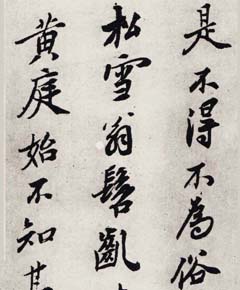 是不得不為俗
松雪翁髫亂
黃庭始不知其